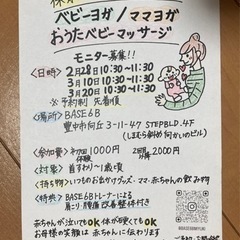 ベビーヨガ/ママヨガ
おうたベビーマッサージ
モニター募集!!
〈日時〉 2月28日 10:30〜11:30
3月10日 10:30〜11:30
3月20日 10:30〜11:30
※予約制 先着順
〈場所〉 BASE6B
豊中市向丘3-11-47 STEPBLD.4F
(しまむら斜め向かいのビル)
〈参加費〉 初回体験 1000円 2回目以降 2000円
〈対象〉 首すわり〜1歳ごろ
〈持ち物〉 いつものお出かけグッズ・ママ・赤ちゃんの飲み物
〈特典〉 BASE6Bトレーナーによる
肩こり・腰痛改善整体付き
赤ちゃんが泣いてもOK 体が硬くてもOK
お母様の笑顔は 赤ちゃんに伝わります